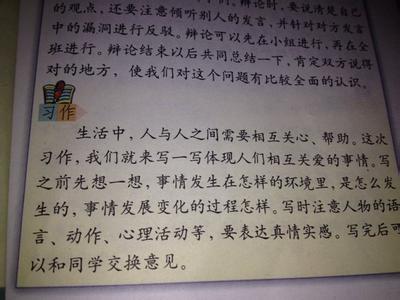 们。辩论时，要说清楚自己
的观点，还要注意倾听别人的发言，并针对对方发言
中的漏洞进行反驳。辩论可以先在小组进行，再在全
班进行。辩论结束以后共同总结一下，肯定双方说得
对的地方，使我们对这个问题有比较全面的认识。
习作
生活中，人与人之间需要相互关心、帮助。这次
习作，我们就来写一写体现人们相互关爱的事情。写
之前先想一想，事情发生在怎样的环境里，是怎么发
生的，事情发展变化的过程怎样。写时注意人物的语
言、动作、心理活动等，要表达真情实感。写完后可
以和同学交换意见。